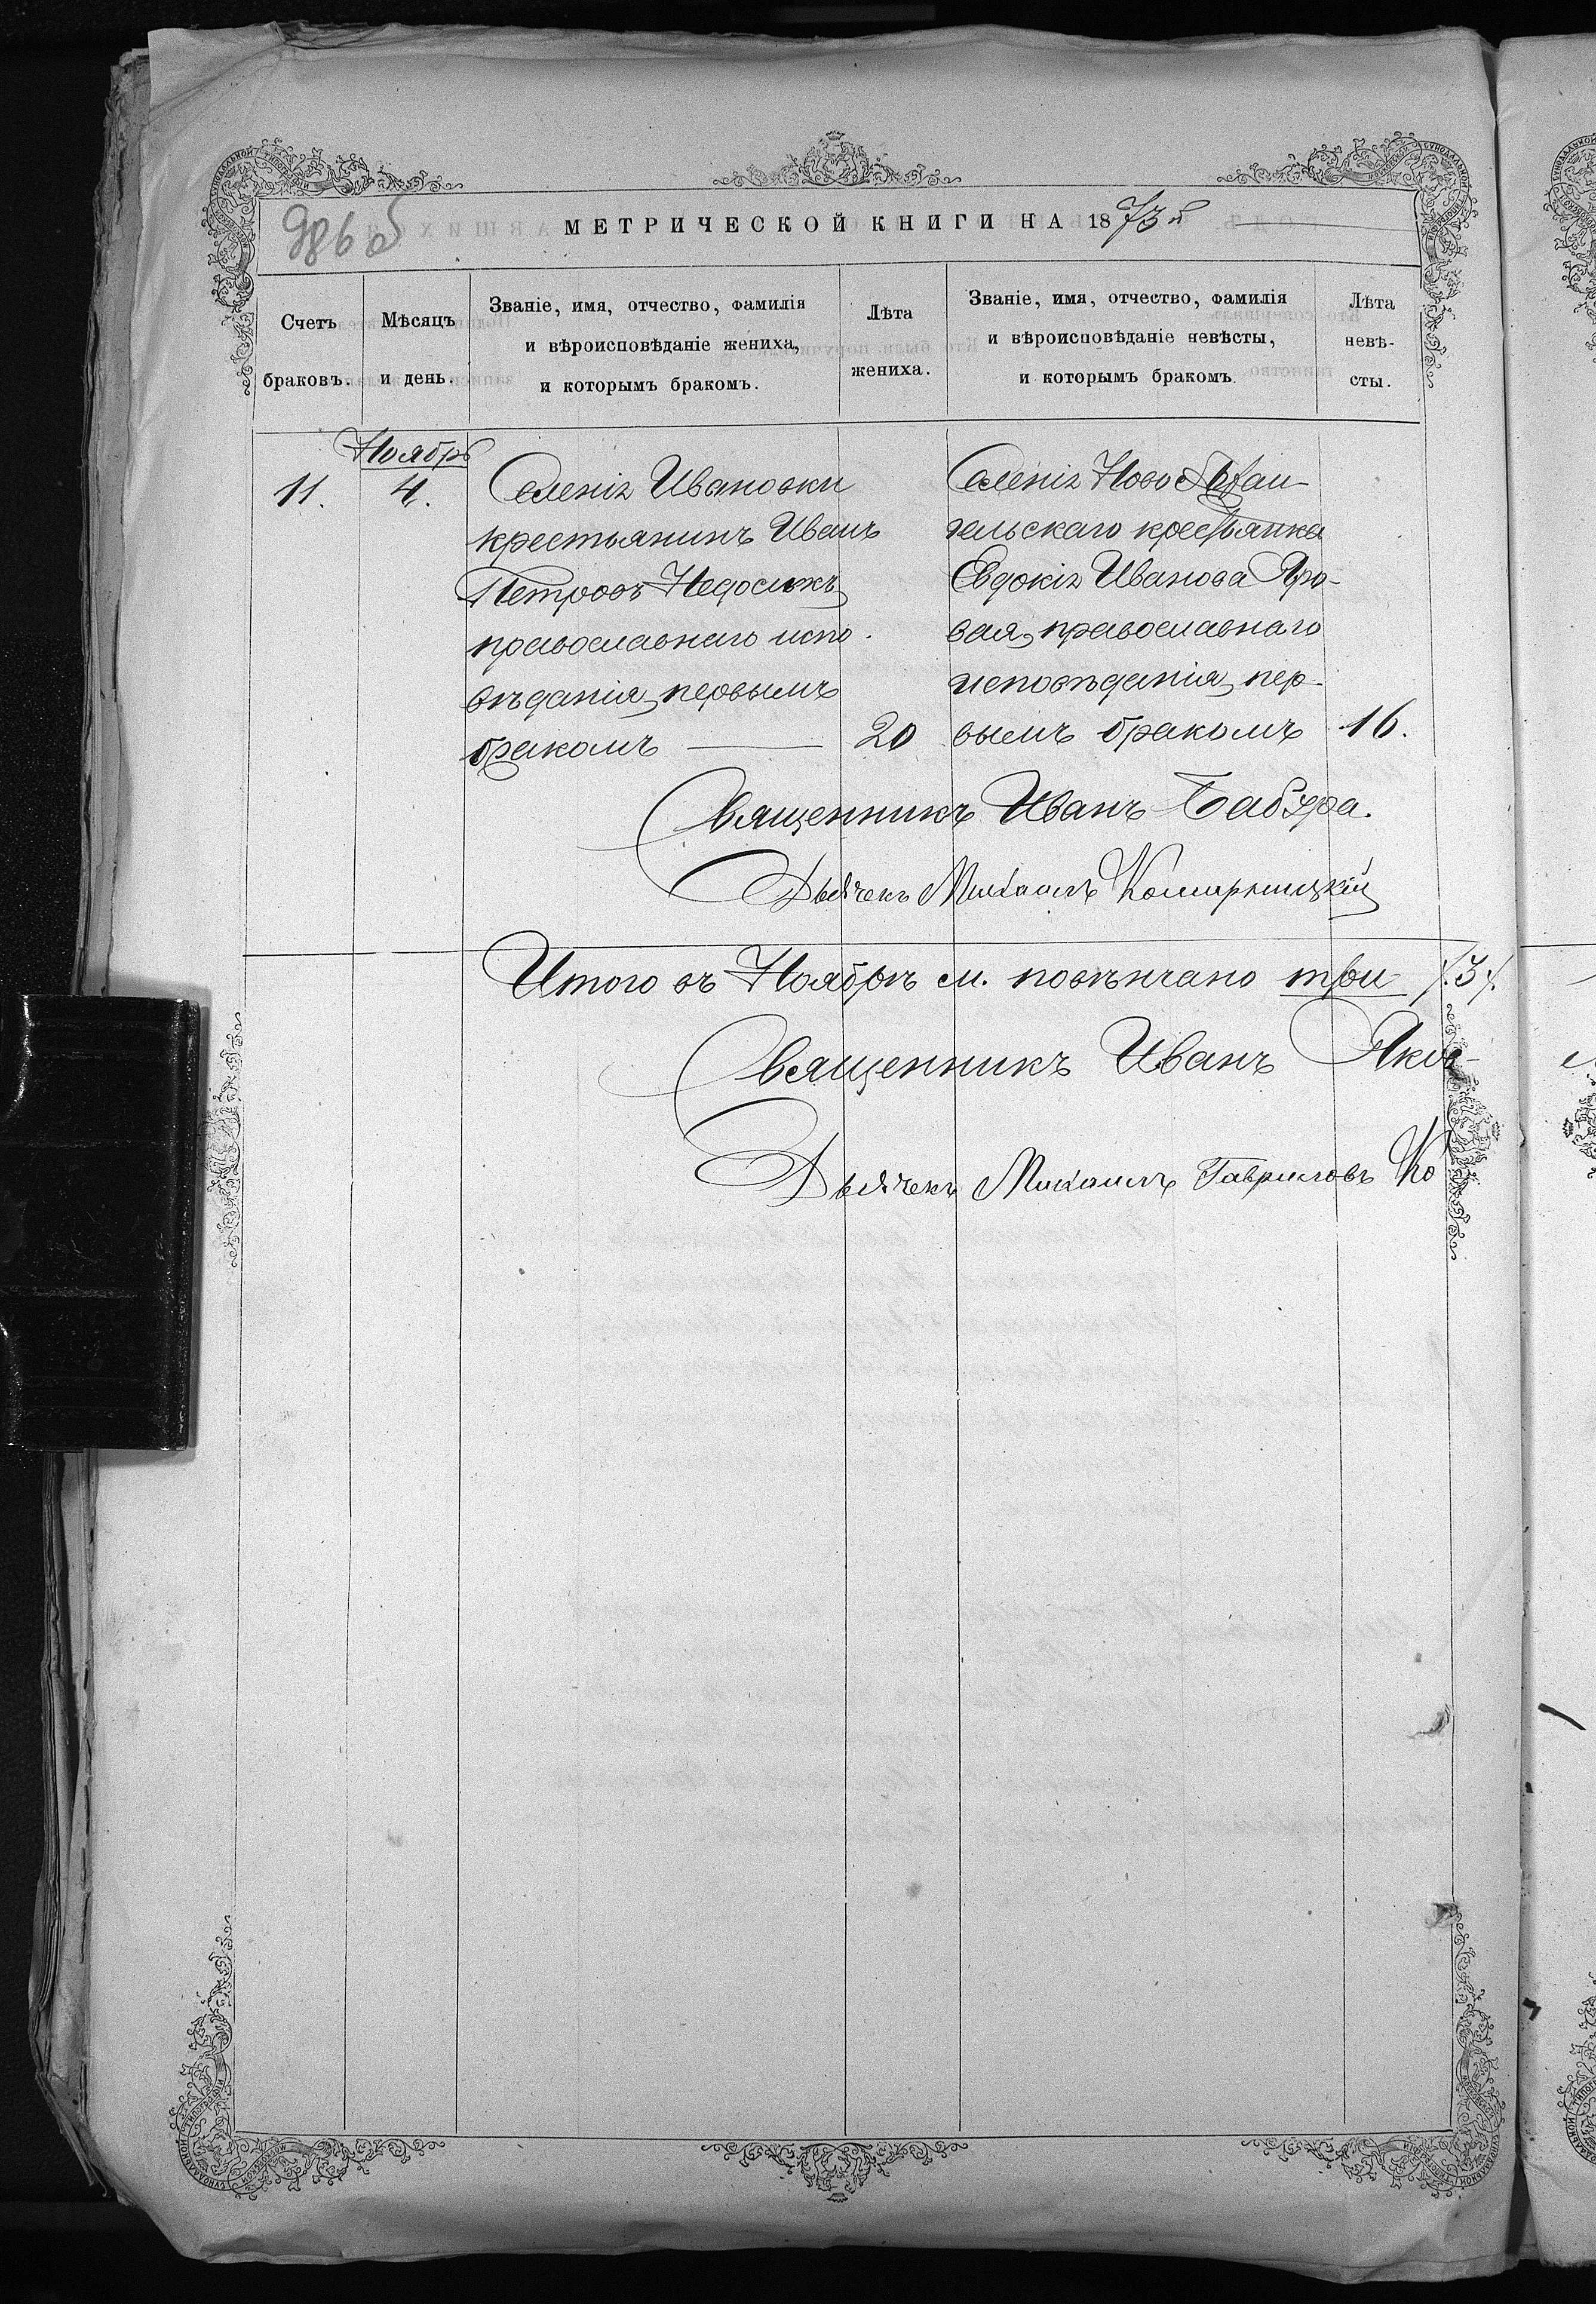 986об
МЕТРИЧЕСКОЙ КНИГИ НА 1873й
Счетъ браковъ.
Мѣсяцъ и день.
Званіе, имя, отчество, фамилія
и вѣроисповѣданіе жениха,
и которымъ бракомъ.
Лѣта
жениха.
Званіе, имя, отчество, фамилія
и вѣроисповѣданіе невѣсты,
и которымъ бракомъ.
Лѣта
невѣ-
сты.
Ноябрь
11.
4.
Селенія Ивановки
крестьянинъ Иванъ
Петровъ Недосѣкъ
православнаго испо-
вѣданія, первымъ
бракомъ
20
Селенія Ново
гельскаго крестьянка
Евдокія Иванова Яро-
вая, православнаго
исповѣданія, пер-
вымъ бракомъ
16.
Священникъ Иванъ Бабура.
Дьячекъ Михаилъ
Итого въ Ноябрѣ м. повѣнчано три /.3/.
Священникъ Иванъ Яков-
Дьячекъ Михаилъ Гавриловъ Ко